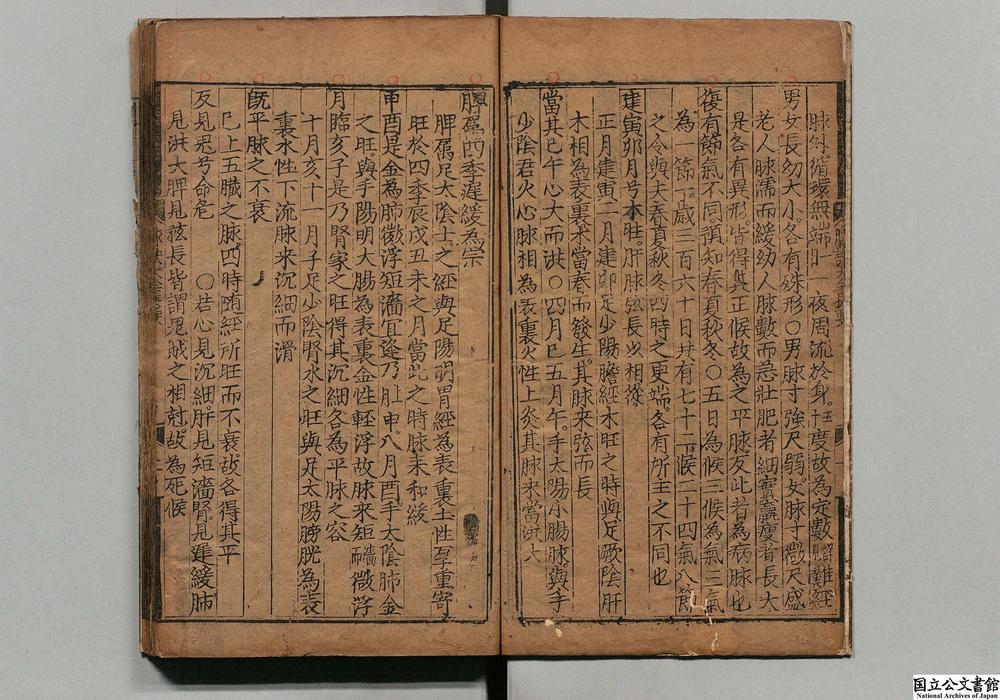 脉斜循環無端一夜周流於身五十度故為定數詳難經
男女長幼大小各有殊形〇男脉寸強尺弱女脉寸微尺盛
老人脉濡而緩幼人脉數而急壯肥者細實羸瘦者長大
是各有異形皆得其正候故為之平脉反此者為病脉也
復有節氣不同預知春夏秋冬〇五日為候三候為氣三氣
為一節一歲三百六十日共有七十二候二十四氣八節
之令與夫春夏秋冬四時之更端各有所主之不同也
建寅卯月兮木旺肝脉弦長以相從
正月建寅二月建卯足少陽膽經木旺之時與足厥陰肝
木相為表裏木當春而發生其脉来弦而長
當其巳午心大而洪〇四月巳五月午手太陽小腸脉與手
少陰君火心脉相為表裏火性上炎其脉来當洪大
脾属四季遲緩為宗
脾属足太陰土之經與足陽明胃經為表裏土性厚重寄
旺於四季辰戌丑未之月當此之時脉来和緩
申酉是金為肺微浮短濇宜逢乃七月申八月酉手太陰肺金
之旺與手陽明大腸為表裏金性輕浮故脉来短濇微浮
月臨亥子是乃腎家之旺得其沉細各為平脉之容
十月亥十一月子足少陰腎水之旺與足太陽膀胱為表
裏水性下流脉来沉細而滑
既平脉之不衰
巳上五臟之脉四時随經所旺而不衰故各得其平
反見鬼兮命危　〇若心見沉細肝見短濇腎見遲緩肺
見洪大脾見弦長皆謂鬼賊之相尅故為死候
国立公文書館
National Archives of Japan